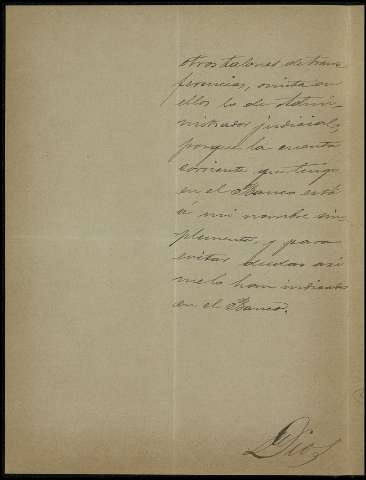 otros talones de trans-
ferencias, omita en
ellos lo de Admi-
nistrador judicial,
porque la cuenta
corriente que tengo
en el Banco está
á mi nombre sim-
plemente, y para
evitar dudas así
me lo han indicado
en el Banco.
Dios